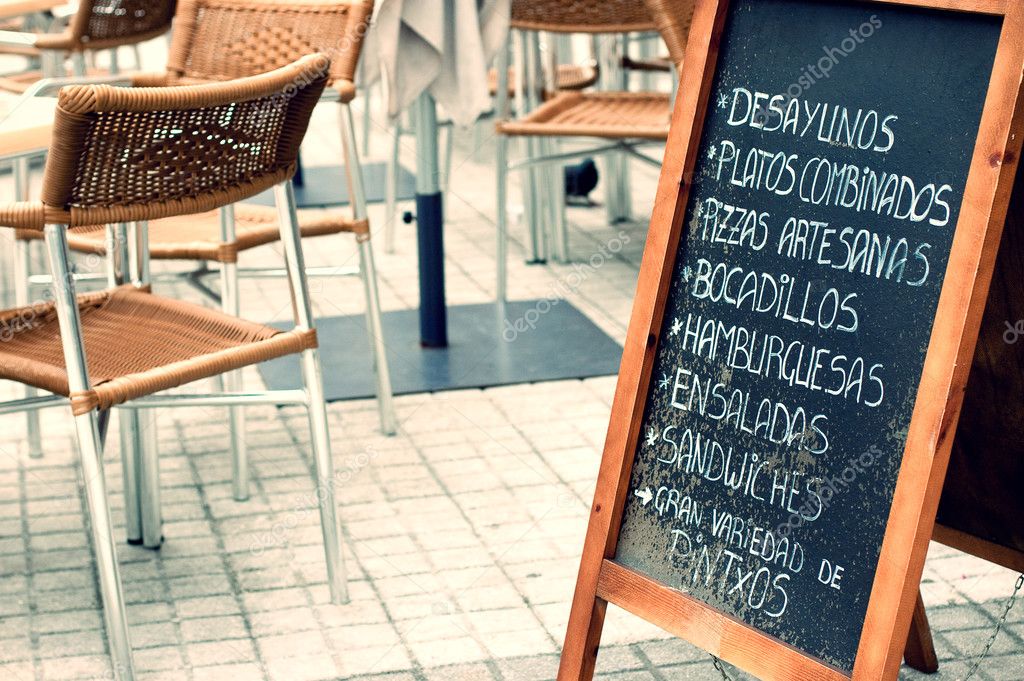 *DESAYUNOS
*PLATOS COMBINADOS
*PIZZAS ARTESANAS
*BOCADILLOS
*HAMBURGUESAS
*ENSALADAS
*SANDWICHES
→GRAN VARIEDAD DE
PINTXOS
depositphotos